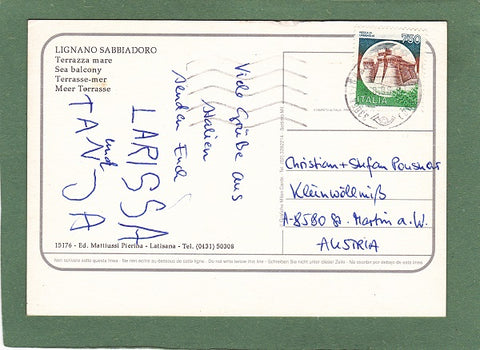 LIGNANO SABBIADORO
Terrazza mare
Sea balcony
Terrasse-mer
Meer Terrasse
Viele Grüße aus
Italien
senden Euch
LARISSA
und
TANJA
750
ITALIA
Christian + Stefan
Kleinwöllmiß
A-8580 St. Martin a. W.
AUSTRIA
15176 - Ed. Mattiussi Pierina - Latisana - Tel. (0431) 50308
Non scrivere sotto questa linea - Ne rien écrire au-dessous de cette ligne - Do not write below this line - Schreiben Sie nicht unter dieser Zeile - No escribir por debajo de esta línea